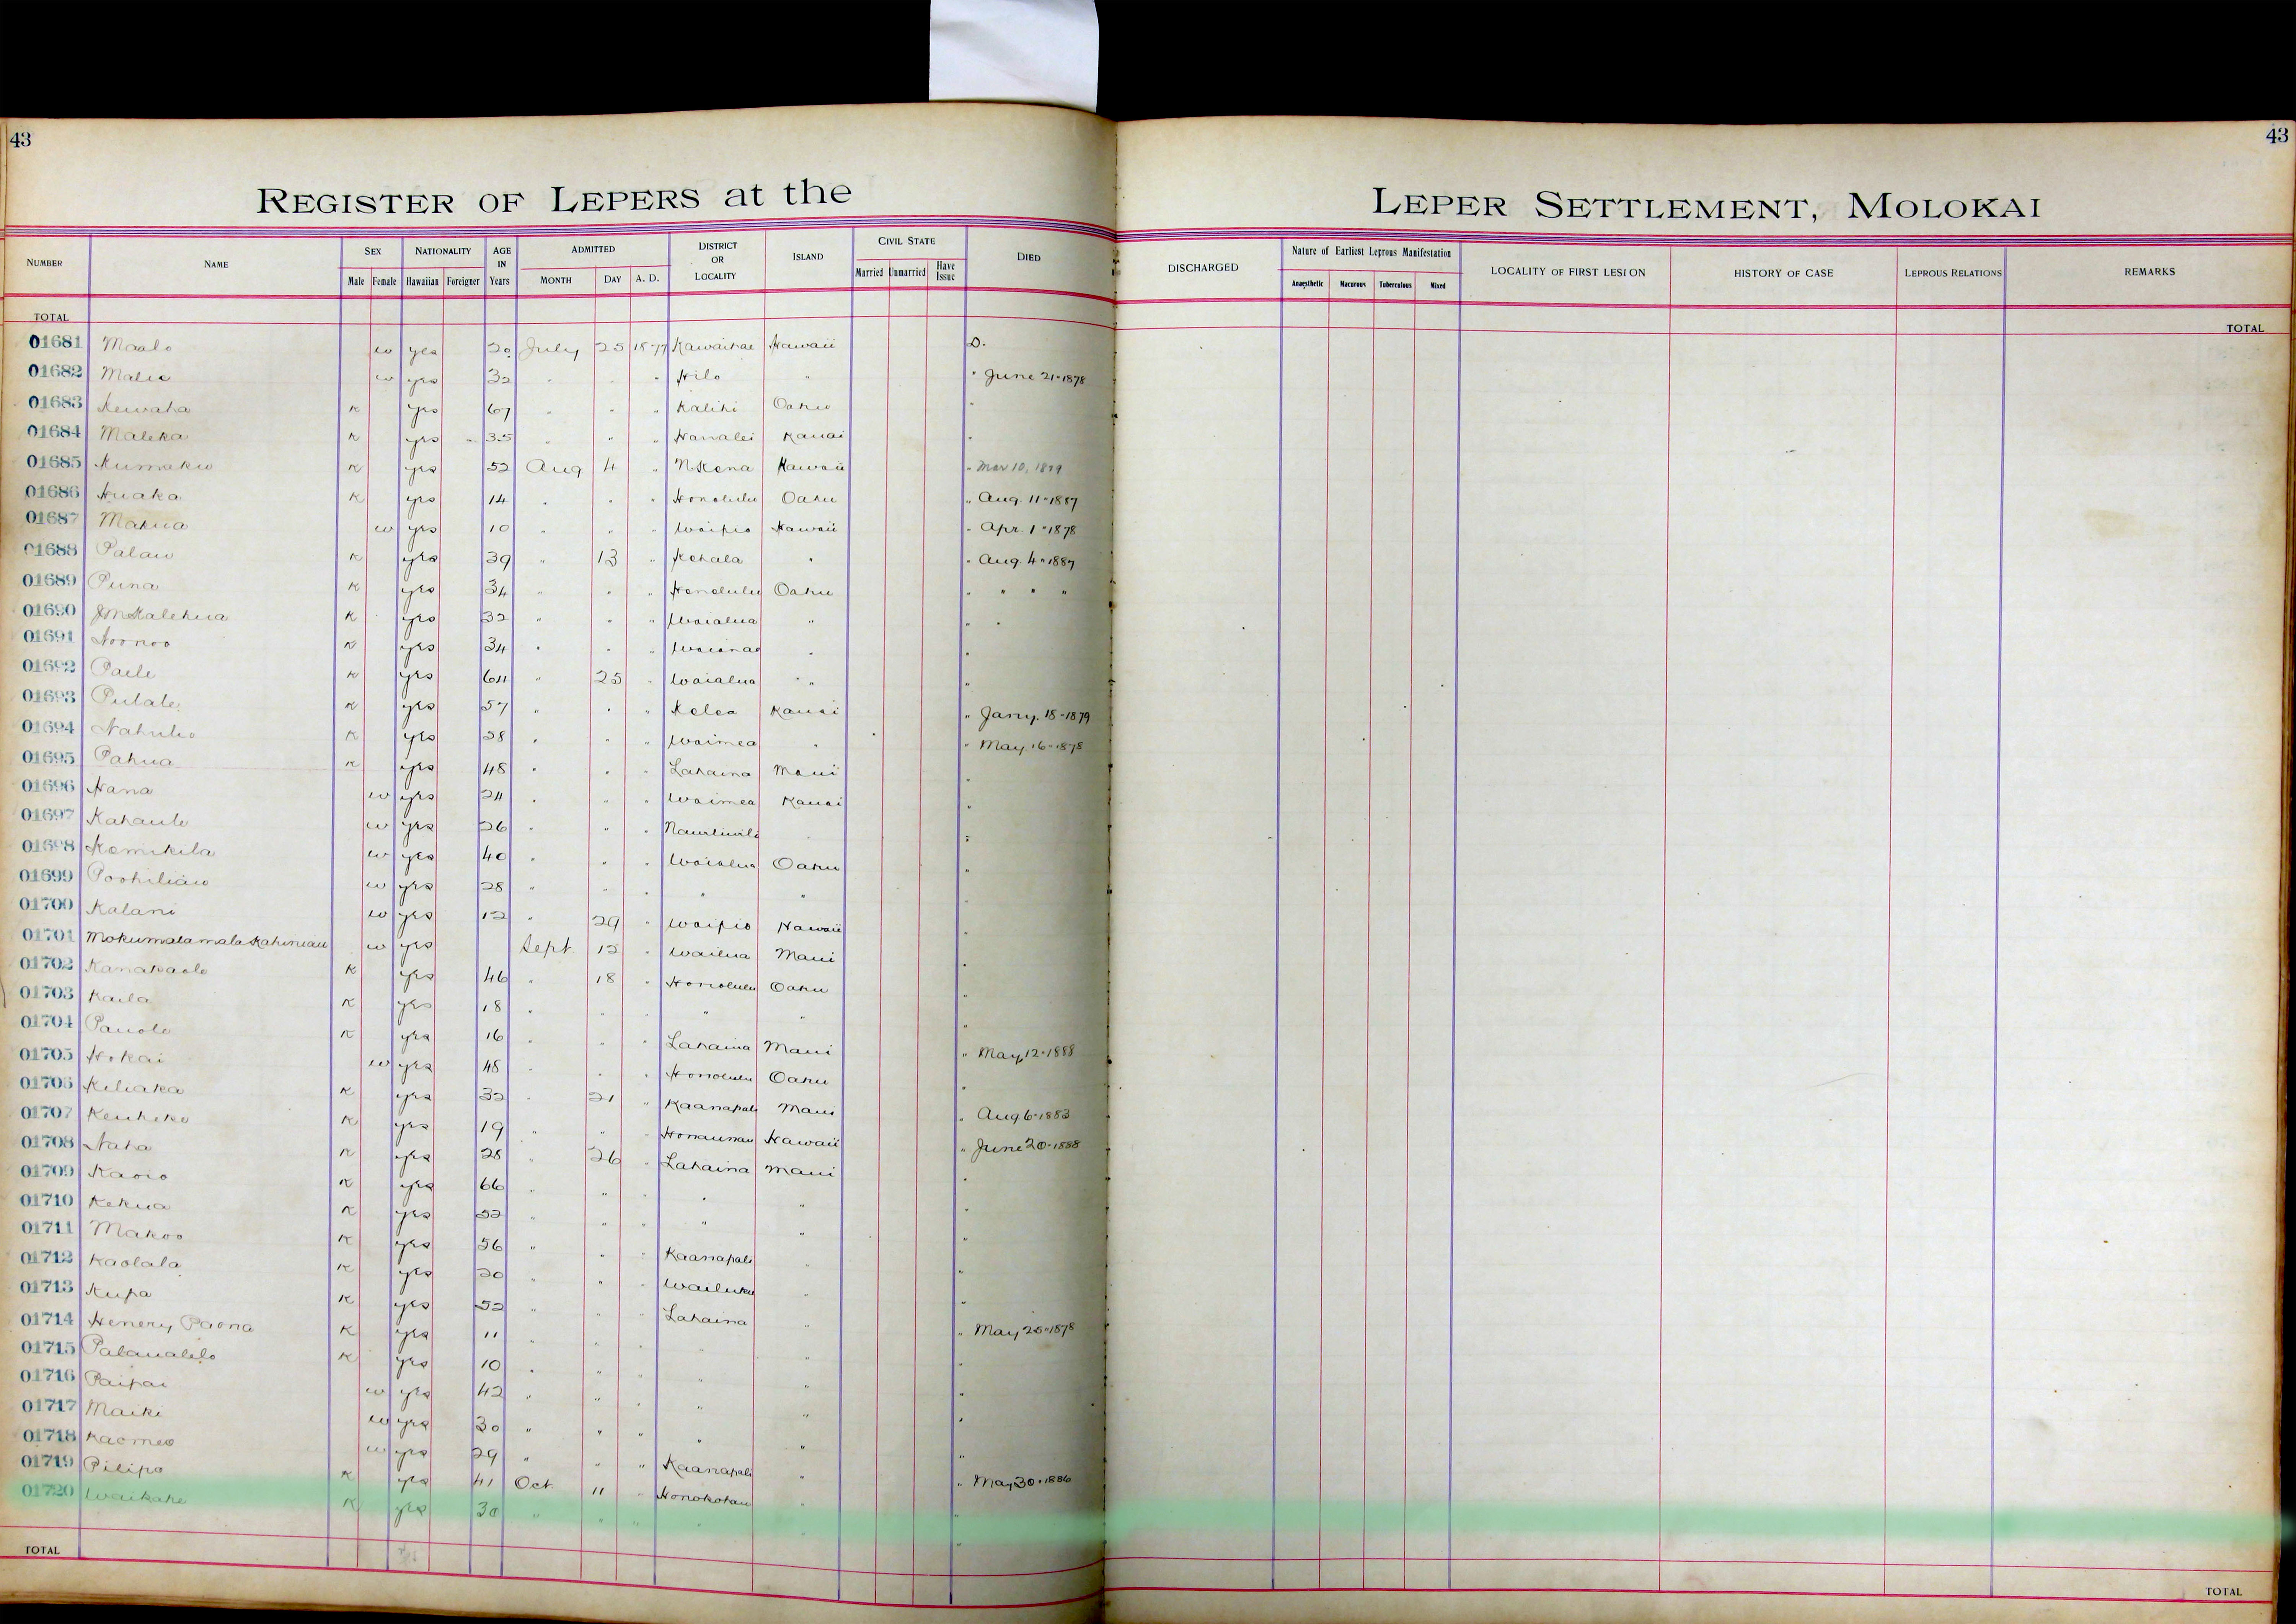 43
43
REGISTER OF LEPERS at the
LEPER SETTLEMENT, MOLOKAI
NUMBER NAME SEX NATIONALITY AGE IN Years ADMITTED DISTRICT OR LOCALITY ISLAND CIVIL STATE DIED DISCHARGED Nature of Earliest Leprous Manifestation LOCALITY OF FIRST LESION HISTORY OF CASE LEPROUS RELATIONS REMARKS
Male Female Hawaiian Foreigner MONTH DAY A. D. Married Unmarried Have Issue Anaesthetic Macurous Tuberculous Mixed
TOTAL TOTAL
01681 Maalo w yes 20 July 25 1877 Kawaihae Hawaii D.
01682 Malie w yes 32 " " " Hilo " " June 21-1878
01683 Kewaha K yes 67 " " " Kalihi Oahu "
01684 Maleka K yes 35 " " " Hanalei Kauai "
01685 Kumaku K yes 52 Aug 4 " N Kona Hawaii " Mar 10, 1879
01686 Huaka K yes 14 " " " Honolulu Oahu " Aug. 11-1887
01687 Makua w yes 10 " " " Waipio Hawaii " Apr. 1-1878
01688 Palau K yes 39 " 13 " Kohala " " Aug. 4-1887
01689 Puna K yes 34 " " " Honolulu Oahu " " " "
01690 J M Kalehua K yes 32 " " " Waialua " " "
01691 Noonoo K yes 34 " " " Waianae " "
01692 Paele K yes 64 " 25 " Waialua " "
01693 Pulale K yes 57 " " " Kolea Kauai " Jany. 18-1879
01694 Nahulu K yes 28 " " " Waimea " " May. 16-1878
01695 Pahua K yes 48 " " " Lahaina Maui "
01696 Hana w yes 24 " " " Waimea Kauai "
01697 Kahaule w yes 26 " " " Nawiliwili "
01698 Kamikila w yes 40 " " " Waialua Oahu "
01699 Poohiliau w yes 28 " " " " "
01700 Kalani w yes 12 " 29 " Waipio Hawaii "
01701 Mokumalamala Kahiniau w yes Sept 12 " Wailua Maui "
01702 Kanakaole K yes 46 " 18 " Honolulu Oahu "
01703 Kaila K yes 18 " " " " " "
01704 Pauole K yes 16 " " " Lahaina Maui " May 12-1888
01705 Hokai w yes 48 " " " Honolulu Oahu "
01706 Keliaka K yes 32 " 21 " Kaanapali Maui " Aug 6-1883
01707 Keuheke K yes 19 " " " Honaunau Hawaii " June 20-1888
01708 Naha K yes 28 " 26 " Lahaina Maui "
01709 Kaoio K yes 66 " " " " " "
01710 Kekua K yes 52 " " " " " "
01711 Makoo K yes 56 " " " Kaanapali " "
01712 Kaolala K yes 20 " " " Wailuku " "
01713 Kupa K yes 52 " " " Lahaina " "
01714 Henery Paona K yes 11 " " " " " " May 25-1878
01715 Palaualelo K yes 10 " " " " " "
01716 Paipai w yes 42 " " " " " "
01717 Maiki w yes 30 " " " " " "
01718 Kaomeo w yes 29 " " " Kaanapali " "
01719 Pilipo K yes 41 Oct 11 " Honokohau " " May 30-1886
01720 Waikahe K yes 30 " " " " " "
TOTAL TOTAL